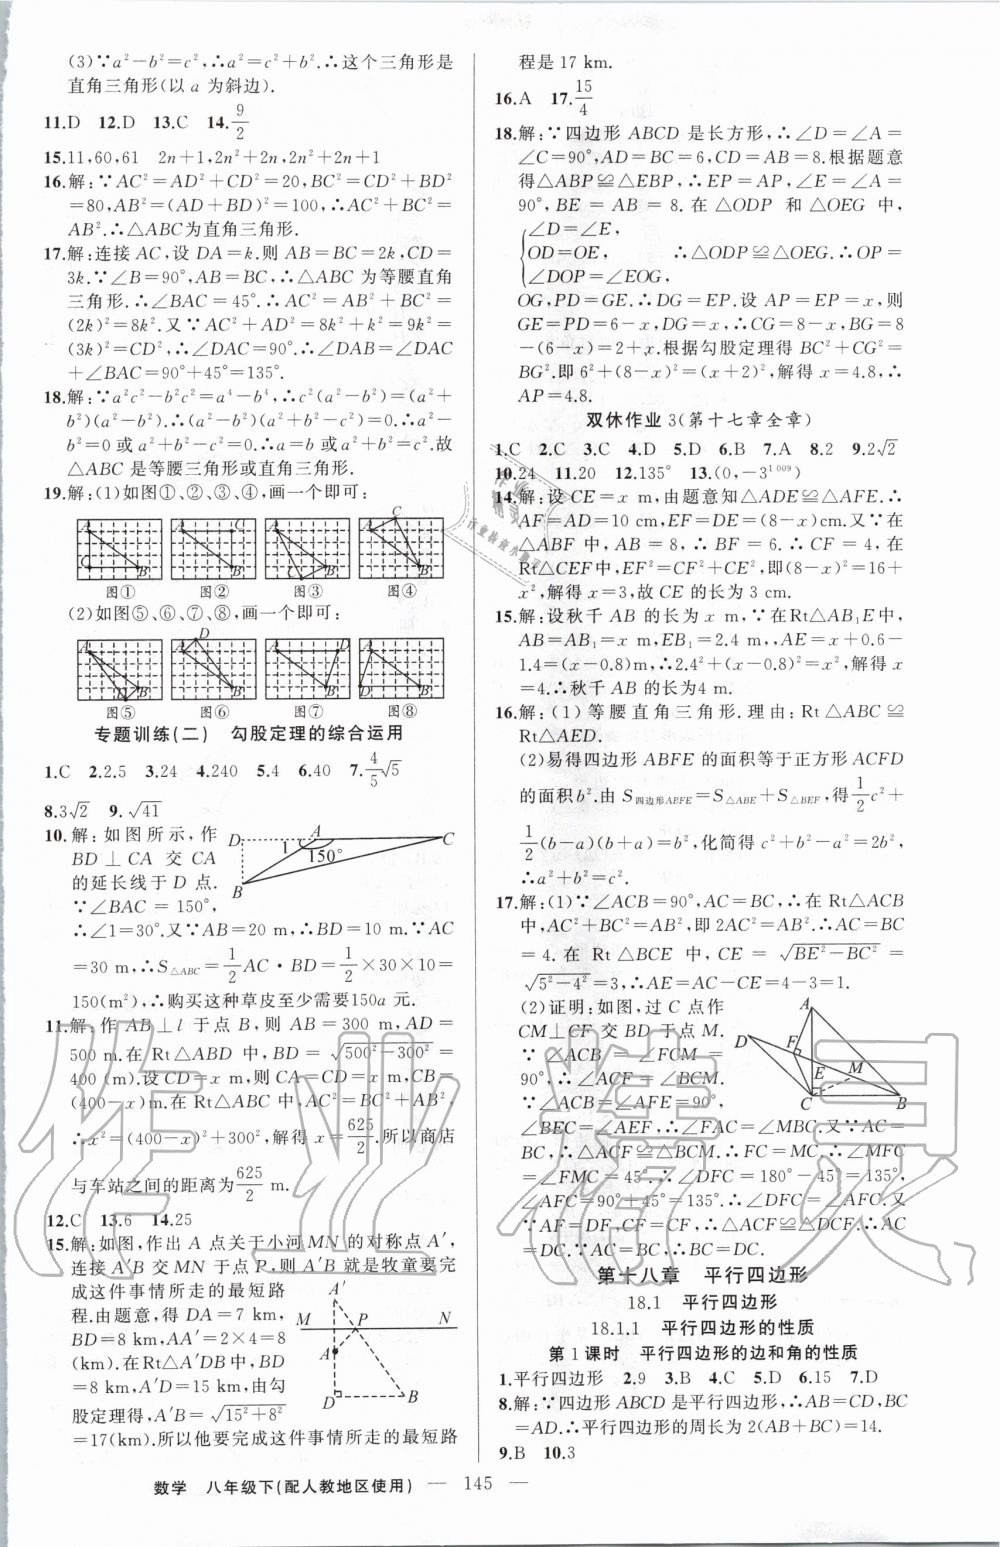 (3)∵a²-b²=c²,∴a²=c²+b².∴这个三角形是
直角三角形(以 a 为斜边).
11.D 12.D 13.C 14.9/2
15.11,60,61 2n+1,2n²+2n,2n²+2n+1
16.解:∵AC²=AD²+CD²=20,BC²=CD²+BD²
=80,AB²=(AD+BD)²=100,∴AC²+BC²=
AB².∴△ABC为直角三角形.
17.解:连接 AC,设 DA=k.则 AB=BC=2k,CD=
3k.∵∠B=90°,AB=BC,∴△ABC 为等腰直角
三角形.∴∠BAC=45°.∴AC²=AB²+BC²=
(2k)²=8k².又∵AC²+AD²=8k²+k²=9k²=
(3k)²=CD²,∴∠DAC=90°.∴∠DAB=∠DAC
+∠BAC=90°+45°=135°.
18.解:∵a²c²-b²c²=a⁴-b⁴,∴c²(a²-b²)=(a²+
b²)(a²-b²).∴(a²-b²)(a²+b²-c²)=0.∴a²-
b²=0 或 a²+b²-c²=0.∴a=b 或 a²+b²=c².故
△ABC 是等腰三角形或直角三角形.
19.解:(1)如图①、②、③、④,画一个即可:
A C B A C B A C B A C B
图① 图② 图③ 图④
(2)如图⑤、⑥、⑦、⑧,画一个即可:
A D B A D B A D B A D B
图⑤ 图⑥ 图⑦ 图⑧
专题训练(二) 勾股定理的综合运用
1.C 2.2.5 3.24 4.240 5.4 6.40 7.4/5√5
8.3√2 9.√41
10.解:如图所示,作
BD⊥CA 交 CA
的延长线于 D 点.
∵∠BAC=150°,
D A C 1 150° B
∴∠1=30°.又∵AB=20 m,∴BD=10 m.∵AC
=30 m,∴S△ABC=1/2AC·BD=1/2×30×10=
150(m²),∴购买这种草皮至少需要150a 元.
11.解:作 AB⊥l 于点 B,则 AB=300 m,AD=
500 m.在 Rt△ABD 中,BD=√(500²-300²)=
400 (m).设 CD=x m,则 CA=CD=x m,CB=
(400-x) m.在 Rt△ABC 中,AC²=BC²+AB²,
∴x²=(400-x)²+300²,解得 x=625/2.所以商店
与车站之间的距离为625/2 m.
12.C 13.6 14.25
15.解:如图,作出 A 点关于小河 MN 的对称点 A′,
连接 A′B 交 MN 于点 P,则 A′B 就是牧童要完
成这件事情所走的最短路
程.由题意,得 DA=7 km,
BD=8 km,AA′=2×4=8
(km).在Rt△A′DB 中,BD
=8 km,A′D=15 km,由勾
股定理得,A′B=√(15²+8²)
A′ M P N A D B
=17(km).所以他要完成这件事情所走的最短路
程是 17 km.
16.A 17.15/4
18.解:∵四边形 ABCD 是长方形,∴∠D=∠A=
∠C=90°,AD=BC=6,CD=AB=8.根据题意
得△ABP≌△EBP,∴EP=AP,∠E=∠A=
90°,BE=AB=8.在△ODP 和△OEG 中,
{∠D=∠E,
OD=OE, ∴△ODP≌△OEG.∴OP=
∠DOP=∠EOG,
OG,PD=GE.∴DG=EP.设 AP=EP=x,则
GE=PD=6-x,DG=x,∴CG=8-x,BG=8
-(6-x)=2+x.根据勾股定理得 BC²+CG²=
BG².即 6²+(8-x)²=(x+2)²,解得 x=4.8,∴
AP=4.8.
双休作业 3(第十七章全章)
1.C 2.C 3.C 4.D 5.D 6.B 7.A 8.2 9.2√2
10.24 11.20 12.135° 13.(0,-3¹⁰⁰⁹)
14.解:设 CE=x m,由题意知△ADE≌△AFE.∴
AF=AD=10 cm,EF=DE=(8-x)cm.又∵在
△ABF 中,AB=8,∴BF=6.∴CF=4,在
Rt△CEF中,EF²=CF²+CE²,即(8-x)²=16+
x²,解得 x=3,故 CE 的长为 3 cm.
15.解:设秋千 AB 的长为 x m,∵在 Rt△AB₁E中,
AB=AB₁=x m,EB₁=2.4 m,,AE=x+0.6-
1.4=(x-0.8)m,∴2.4²+(x-0.8)²=x²,解得 x
=4.∴秋千 AB 的长为4 m.
16.解:(1)等腰直角三角形.理由:Rt△ABC≌
Rt△AED.
(2)易得四边形 ABFE 的面积等于正方形 ACFD
的面积 b².由 S四边形ABFE=S△ABE+S△BEF,得1/2c²+
1/2(b-a)(b+a)=b²,化简得 c²+b²-a²=2b²,
∴a²+b²=c².
17.解:(1)∵∠ACB=90°,AC=BC,∴在 Rt△ACB
中,AC²+BC²=AB²,即 2AC²=AB².∴AC=BC
=4.在 Rt△BCE 中,CE=√(BE²-BC²)=
√(5²-4²)=3,∴AE=AC-CE=4-3=1.
(2)证明:如图,过 C 点作
CM⊥CF 交 BD 于点 M.
∵∠ACB=∠FCM=
90°,∴∠ACF=∠BCM.
∵∠ACB=∠AFE=90°,
A D F E M C B
∠BEC=∠AEF,∴∠FAC=∠MBC.又∵AC=
BC,∴△ACF≌△BCM.∴FC=MC.∴∠MFC
=∠FMC=45°.∴∠DFC=180°-45°=135°,
∠AFC=90°+45°=135°.∴∠DFC=∠AFC.又
∵AF=DF,CF=CF,∴△AFC≌△DFC.∴AC
=DC.∵AC=BC,∴BC=DC.
第十八章 平行四边形
18.1 平行四边形
18.1.1 平行四边形的性质
第 1 课时 平行四边形的边和角的性质
1.平行四边形 2.9 3.B 4.C 5.D 6.15 7.D
8.解:∵四边形 ABCD 是平行四边形,∴AB=CD,BC
=AD.∴平行四边形的周长为 2(AB+BC)=14.
9.B 10.3
数学 八年级下(配人教地区使用) — 145 —
作业精灵